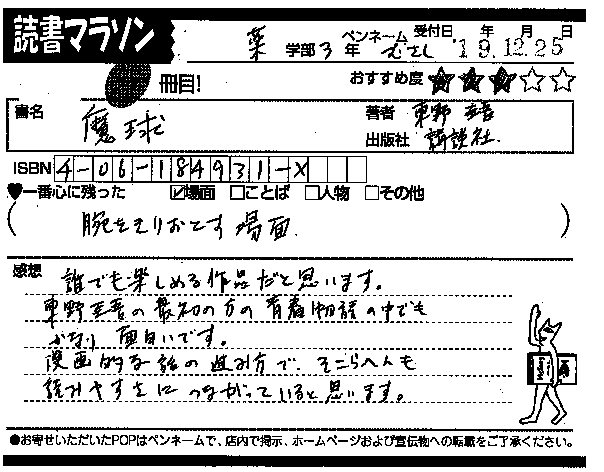 読書マラソン
薬 学部 3 年 ペンネーム むさし 受付日 '19年 12月 25日
冊目!
おすすめ度 ★★★☆☆
書名 魔球
著者 東野圭吾
出版社 講談社
ISBN 4-06-184931-X
♥一番心に残った ☑場面 □ことば □人物 □その他
( 腕をきりおとす場面 )
感想 誰でも楽しめる作品だと思います。
東野圭吾の最初の方の青春物語の中でも
かなり面白いです。
漫画的な話の進み方で、そこらへんも
読みやすさにつながっていると思います。
●お寄せいただいたPOPはペンネームで、店内で掲示、ホームページおよび宣伝物への転載をご了承ください。